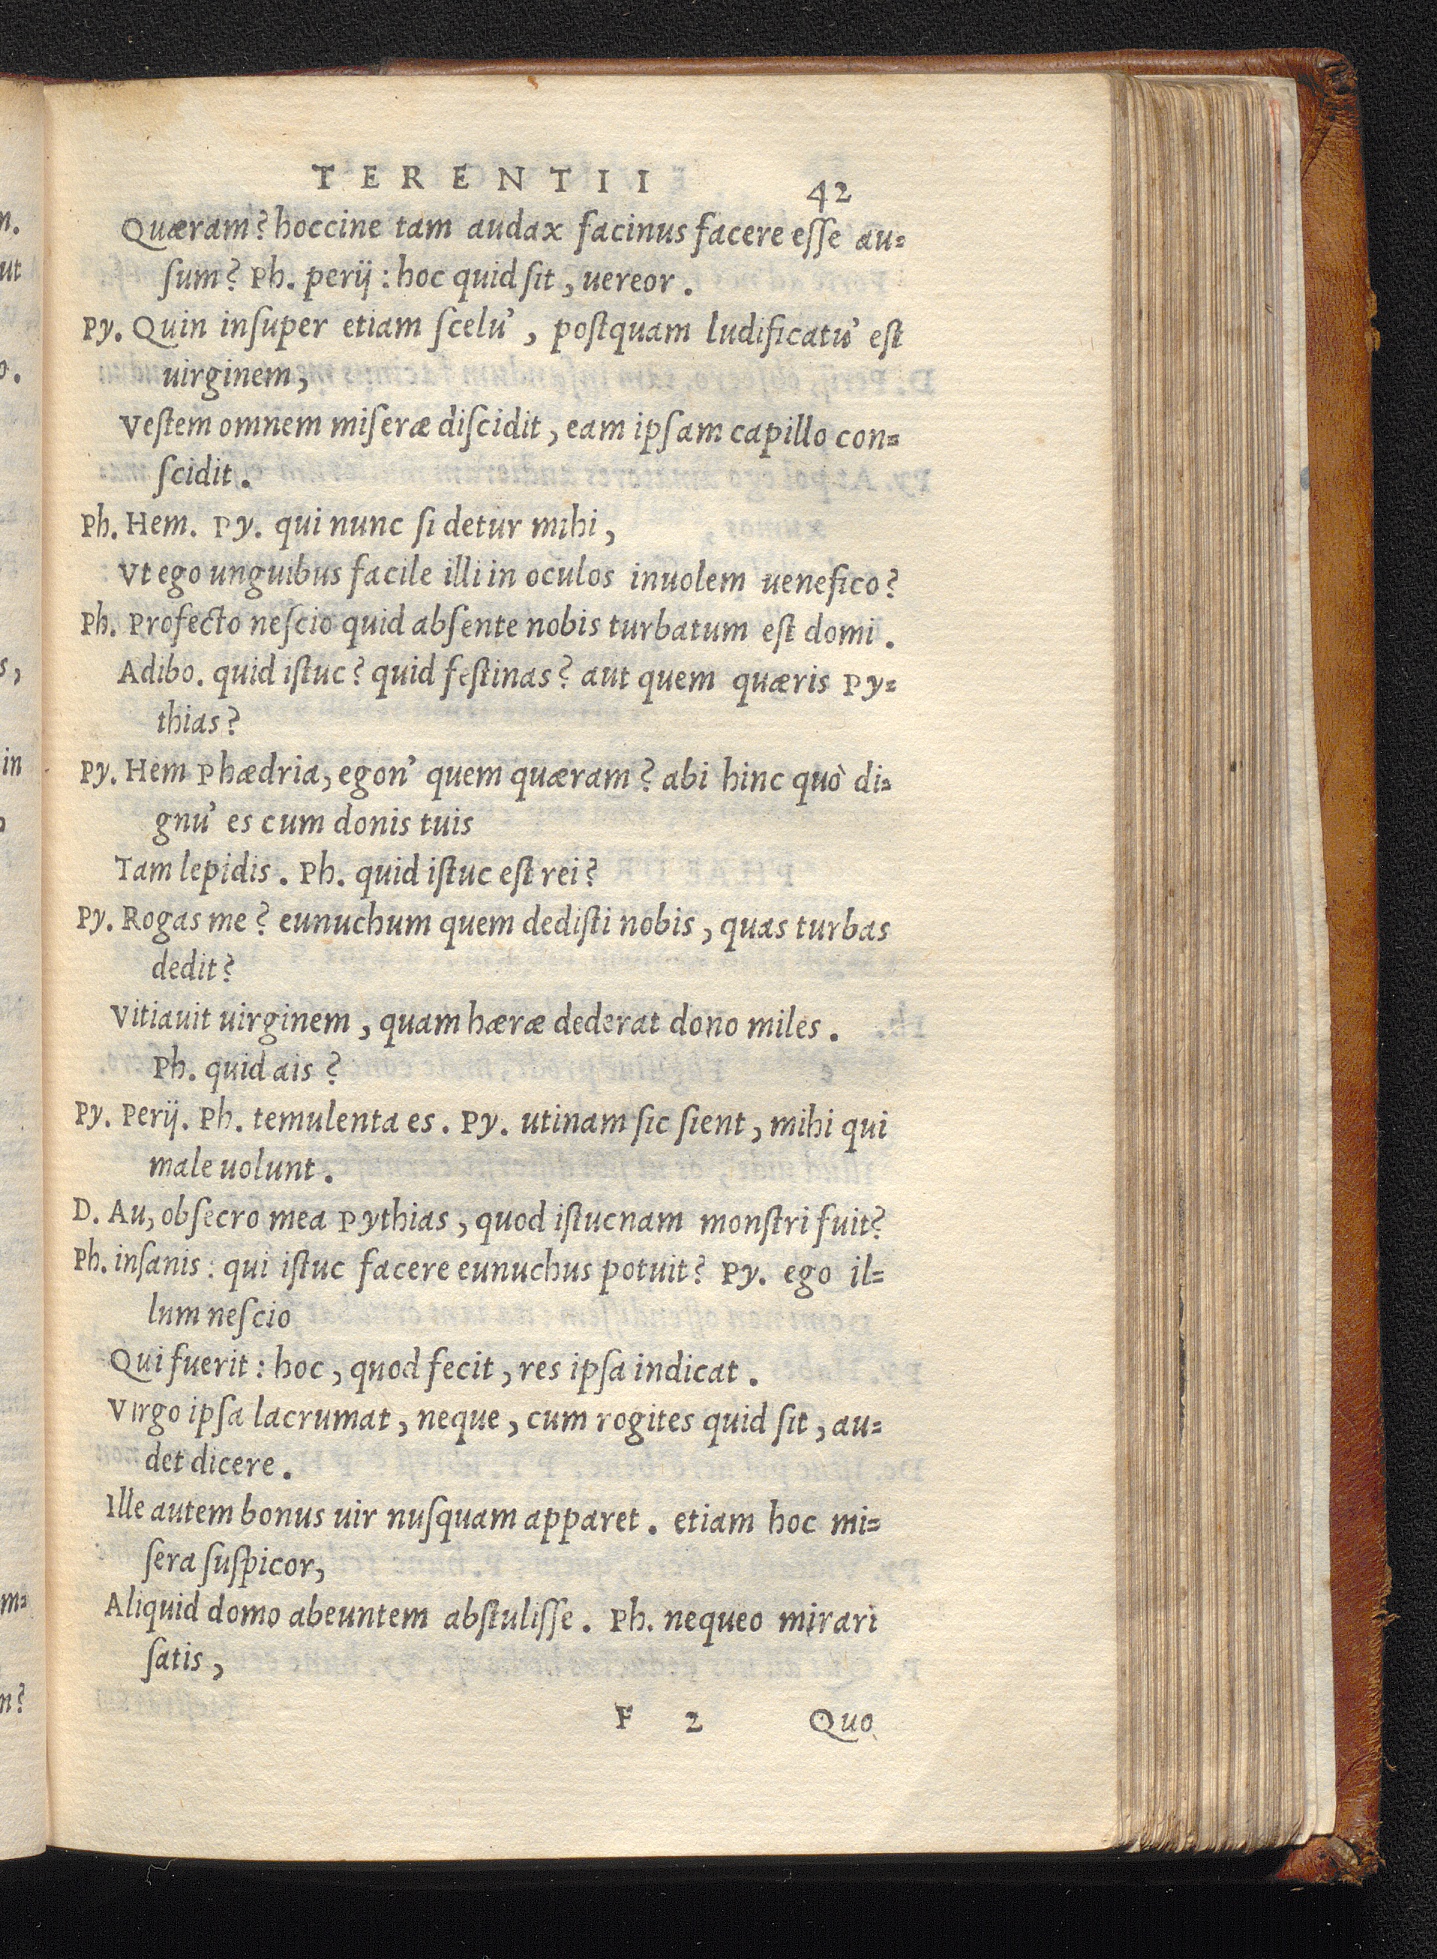 TERENTII 42
Quæram? hoccine tam audax facinus facere eſſe au=
ſum? Ph. perij: hoc quid ſit, uereor.
Py. Quin inſuper etiam ſcelu', poſtquam ludificatu' eſt
uirginem,
Veſtem omnem miſeræ diſcidit, eam ipſam capillo con=
ſcidit.
Ph. Hem. Py. qui nunc ſi detur mihi,
Vt ego unguibus facile illi in oculos inuolem uenefico?
Ph. Profecto neſcio quid abſente nobis turbatum eſt domi.
Adibo. quid iſtuc? quid feſtinas? aut quem quæris Py=
thias?
Py. Hem Phædria, egon' quem quæram? abi hinc quò di=
gnu' es cum donis tuis
Tam lepidis. Ph. quid iſtuc eſt rei?
Py. Rogas me? eunuchum quem dediſti nobis, quas turbas
dedit?
Vitiauit uirginem, quam hæræ dederat dono miles.
Ph. quid ais?
Py. Perij. Ph. temulenta es. Py. utinam ſic ſient, mihi qui
male uolunt.
D. Au, obſecro mea Pythias, quod iſtucnam monſtri fuit?
Ph. inſanis: qui iſtuc facere eunuchus potuit? Py. ego il=
lum neſcio
Qui fuerit: hoc, quod fecit, res ipſa indicat.
Virgo ipſa lacrumat, neque, cum rogites quid ſit, au=
det dicere.
Ille autem bonus uir nuſquam apparet. etiam hoc mi=
ſera ſuſpicor,
Aliquid domo abeuntem abſtuliſſe. Ph. nequeo mirari
ſatis,
F 2 Quo